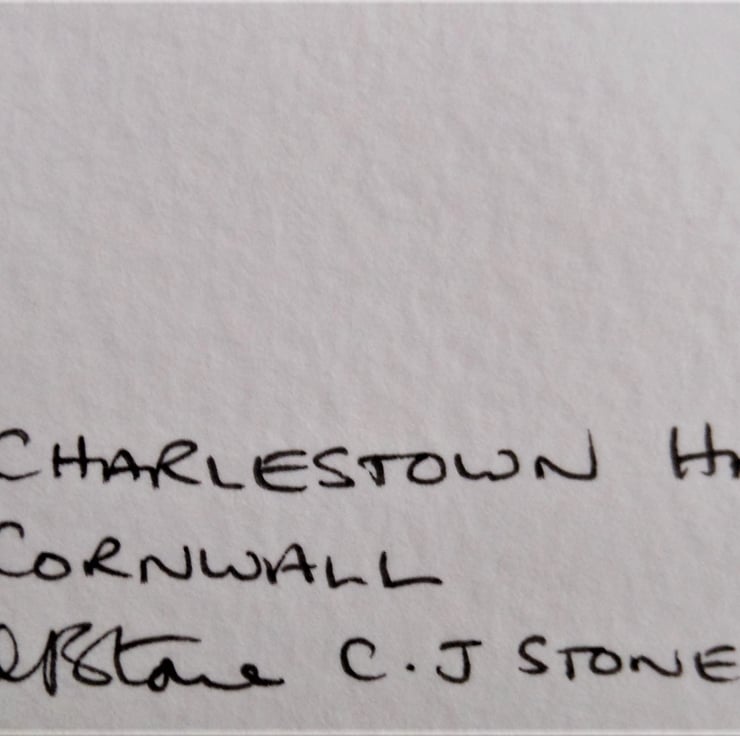 CHARLESTOWN
CORNWALL
Stone C.J STONE